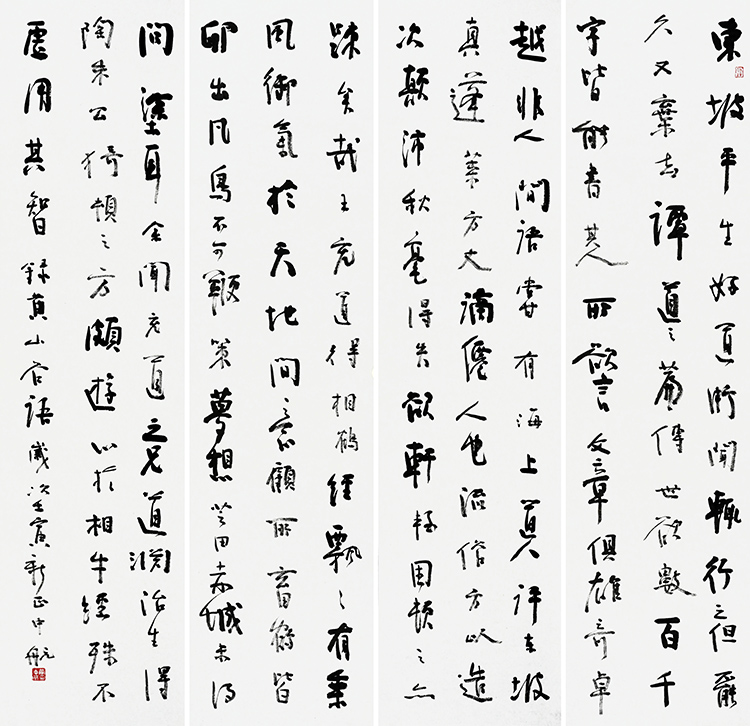 東坡平生好道術聞輒行之但罷
久又棄去譚道之篇傳世欲數百千
字皆能書其人所欲言文章俱雄奇卓
越非人間語嘗有海上道人評東坡
真蓬萊方丈謫僊人也流俗方以造
次顛沛秋毫得失欲軒輊困頓之亦
踈矣哉王充道得相鶴經飄〻有乘
風御氣於天地間之意顧所畜鶴皆
卵出凡鳥不可鞭策夢想芝田赤城未得
問塗耳余聞充道之兄道淵治生得
陶朱公猗頓之方頗遊心於相牛經殊不
虛用其智錄黃山谷語歲次壬寅新正中航